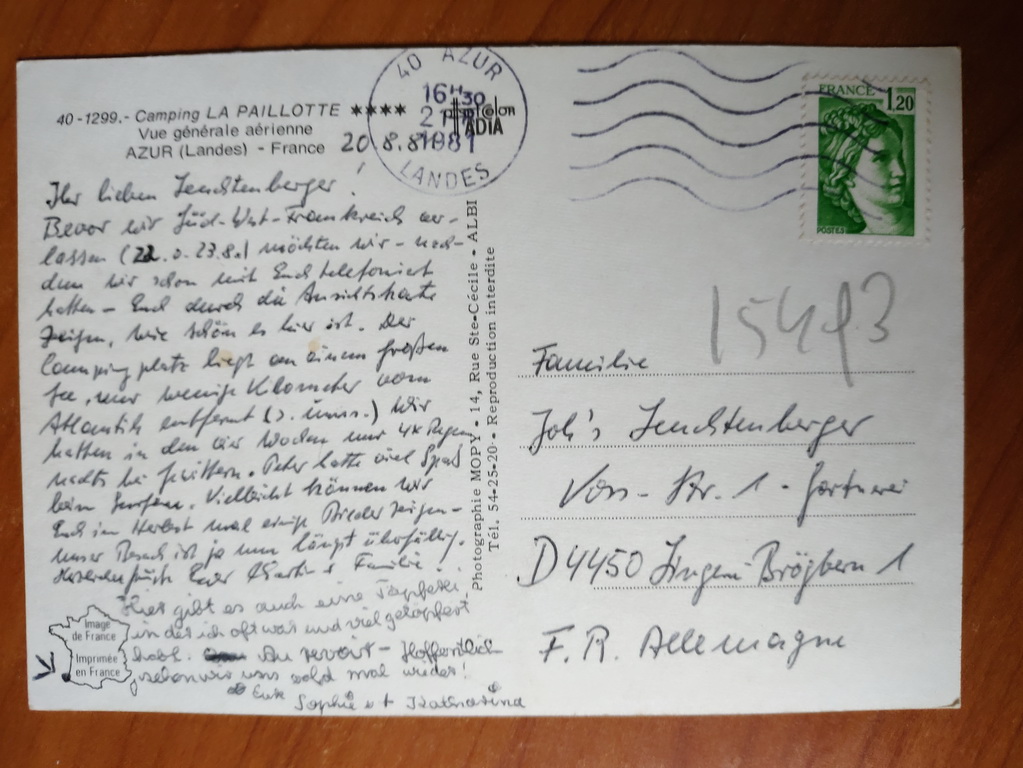 40-1299.- Camping LA PAILLOTTE ****
Vue générale aérienne
AZUR (Landes) - France
20.8.81
40 AZUR
16H30
1981
LANDES
FRANCE 1,20
POSTES
Ihr lieben Leuchtenberger!
Bevor wir Süd-West-Frankreich ver-
lassen (22. o. 23.8.) möchten wir - nach-
dem wir schon mit Euch telefoniert
hatten - Euch durch die Ansichtskarte
zeigen, wie schön es hier ist. Der
Campingplatz liegt an einem großen
See, nur wenige Kilometer vom
Atlantik entfernt (s. ums.) Wir
hatten in den vier Wochen nur 4x Regen
nachts bei Gewittern. Peter hatte viel Spaß
beim Surfen. Vielleicht können wir
Euch im Herbst mal einige Bilder zeigen -
unser Besuch ist ja nun längst überfällig.
Euer Martin + Familie
Hier gibt es auch eine Töpferei,
in der ich oft war und viel getöpfert
hab. Au revoir - Hoffentlich
sehen wir uns bald mal wieder!
Eure
Sophie + Katharina
Image
de France
Imprimée
en France
Photographie MOPY - 14, Rue Ste-Cécile - ALBI
Tél. 54-25-20 - Reproduction interdite
Familie
Joh's Leuchtenberger
Str. 1 - Gärtnerei
D 4450 Lingen Brögbern 1
F. R. Allemagne